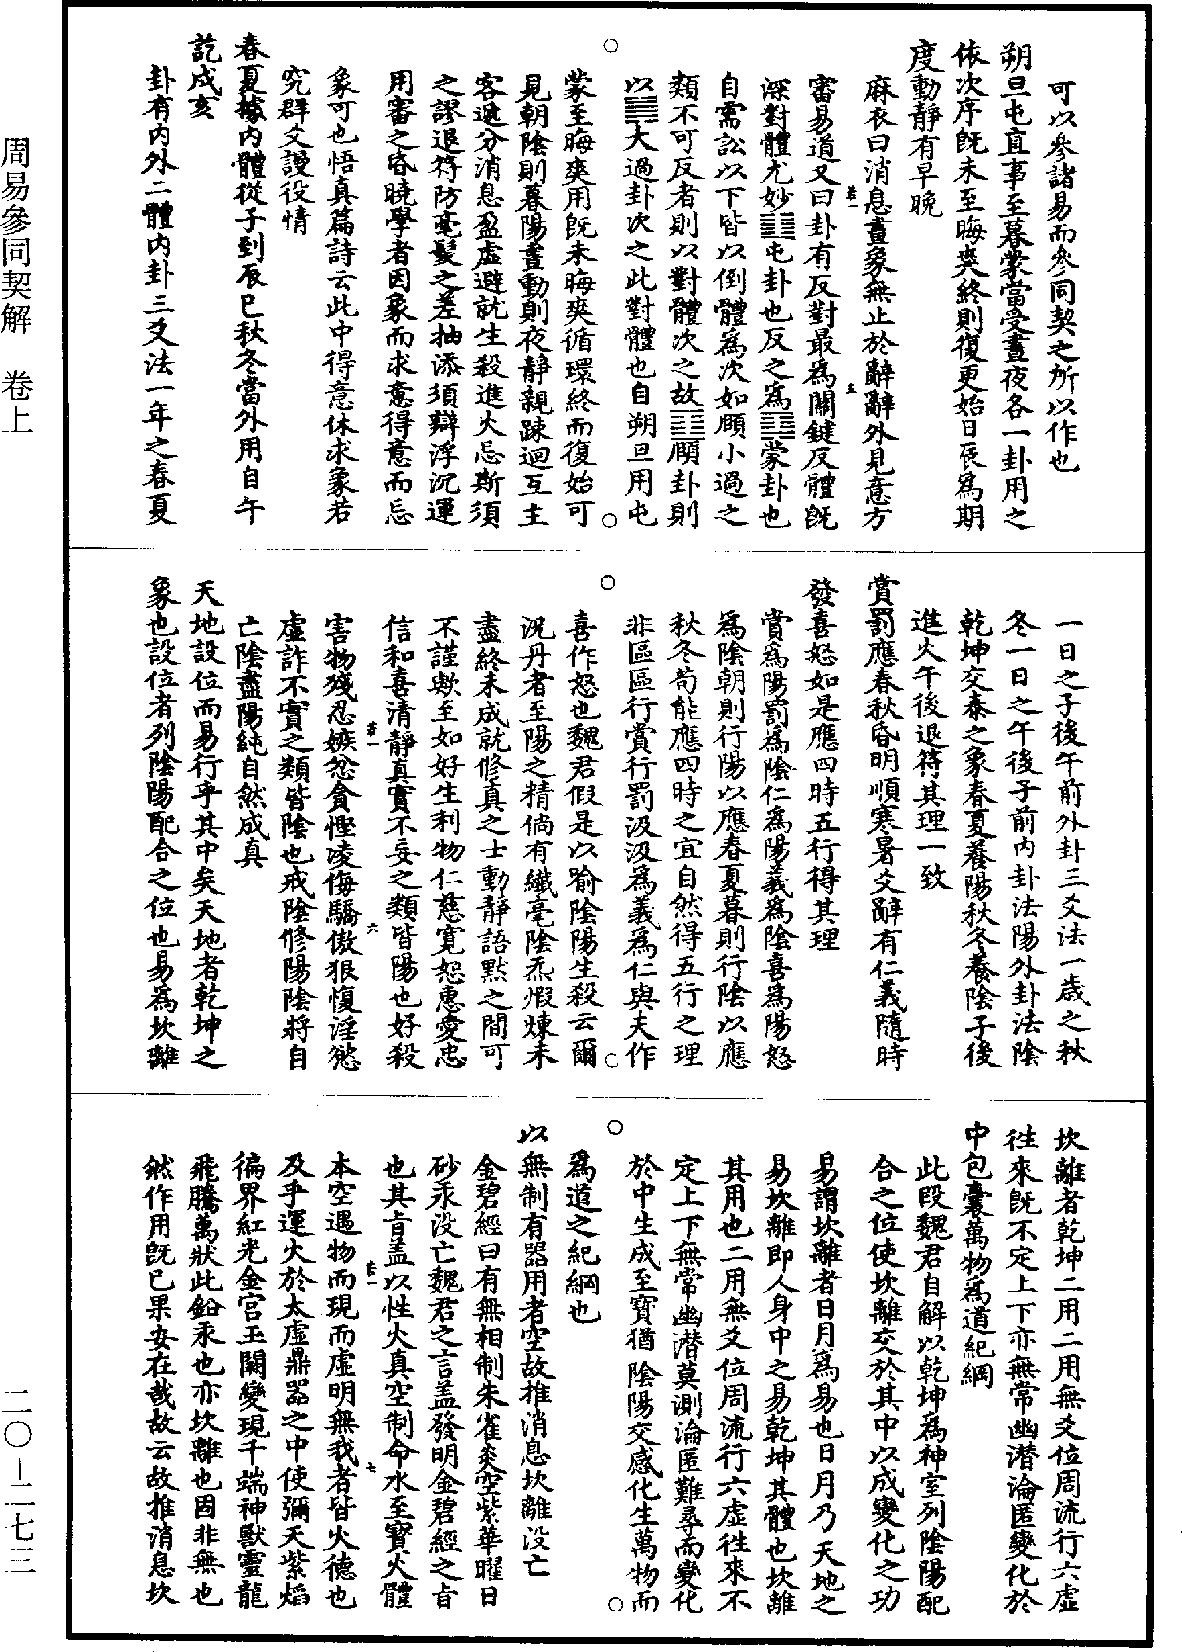 周易參同契解　卷上
二〇—二七三
可以參諸易而參同契之所以作也
朔旦屯直事至暮蒙當受晝夜各一卦用之
依次序既未至晦爽終則復更始日辰為期
度動靜有早晚
麻衣曰消息畫象無止於辭辭外見意方
審易道又曰卦有反對最為關鍵反體既
深對體尤妙䷂屯卦也反之為䷃蒙卦也
自需訟以下皆以倒體為次如頤小過之
類不可反者則以對體次之故䷚頤卦則
以䷛大過卦次之此對體也自朔旦用屯
蒙至晦爽用既未晦爽循環終而復始可
見朝陰則暮陽晝動則夜靜親踈迴互主
客遞分消息盈虛避就生殺進火忌斯須
之謬退符防毫髮之差抽添須辯浮沉運
用審之昏曉學者因象而求意得意而忘
象可也悟真篇詩云此中得意休求象若
究群爻謾役情
春夏據內體從子到辰巳秋冬當外用自午
訖戌亥
卦有內外二體內卦三爻法一年之春夏
一日之子後午前外卦三爻法一歲之秋
冬一日之午後子前內卦法陽外卦法陰
乾坤交泰之象春夏養陽秋冬養陰子後
進火午後退符其理一致
賞罰應春秋昏明順寒暑爻辭有仁義隨時
發喜怒如是應四時五行得其理
賞為陽罰為陰仁為陽義為陰喜為陽怒
為陰朝則行陽以應春夏暮則行陰以應
秋冬苟能應四時之宜自然得五行之理
非區區行賞行罰汲汲為義為仁與夫作
喜作怒也魏君假是以喻陰陽生殺云爾
況丹者至陽之精倘有纖毫陰炁煆煉未
盡終未成就修真之士動靜語默之間可
不謹歟至如好生利物仁慈寬恕惠愛忠
信和喜清靜真實不妄之類皆陽也好殺
害物殘忍嫉忿貪慳凌侮驕傲狠愎淫慾
虛詐不實之類皆陰也戒陰修陽陰將自
亡陰盡陽純自然成真
天地設位而易行乎其中矣天地者乾坤之
象也設位者列陰陽配合之位也易為坎離
坎離者乾坤二用二用無爻位周流行六虛
往來既不定上下亦無常幽潛淪匿變化於
中包囊萬物為道紀綱
此段魏君自解以乾坤為神室列陰陽配
合之位使坎離交於其中以成變化之功
易謂坎離者日月為易也日月乃天地之
易坎離即人身中之易乾坤其體也坎離
其用也二用無爻位周流行六虛往來不
定上下無常幽潛莫測淪匿難尋而變化
於中生成至寶猶陰陽交感化生萬物而
為道之紀綱也
以無制有器用者空故推消息坎離沒亡
金碧經曰有無相制朱雀炎空紫華曜日
砂汞沒亡魏君之言蓋發明金碧經之旨
也其旨蓋以性火真空制命水至寶火體
本空遇物而現而虛明無我者皆火德也
及乎運火於太虛鼎器之中使彌天紫焰
徧界紅光金宮玉闕變現千端神獸靈龍
飛騰萬狀此鉛汞也亦坎離也因非無也
然作用既已果安在哉故云故推消息坎